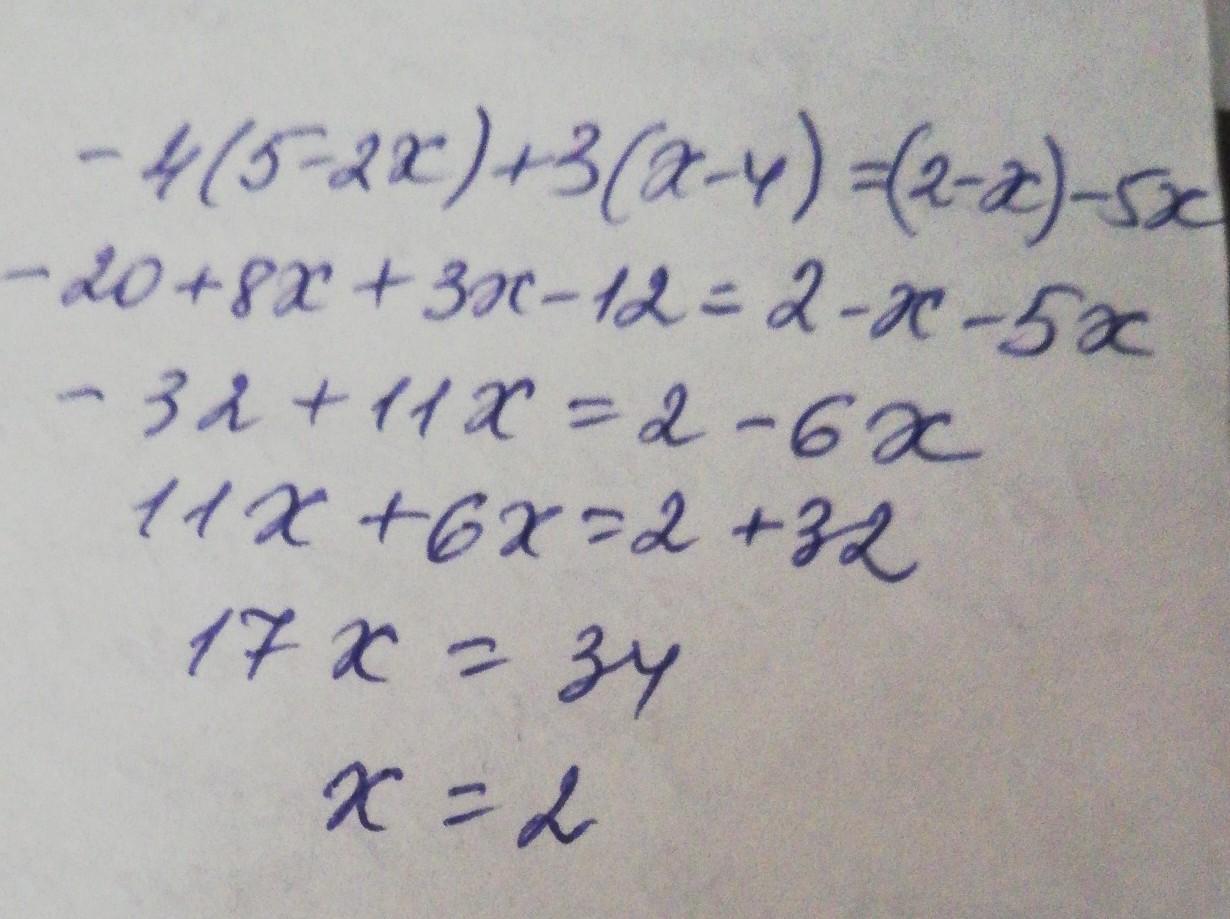 -4(5-2x)+3(x-4)=(2-x)-5x
-20+8x+3x-12=2-x-5x
-32+11x=2-6x
11x+6x=2+32
17x=34
x=2